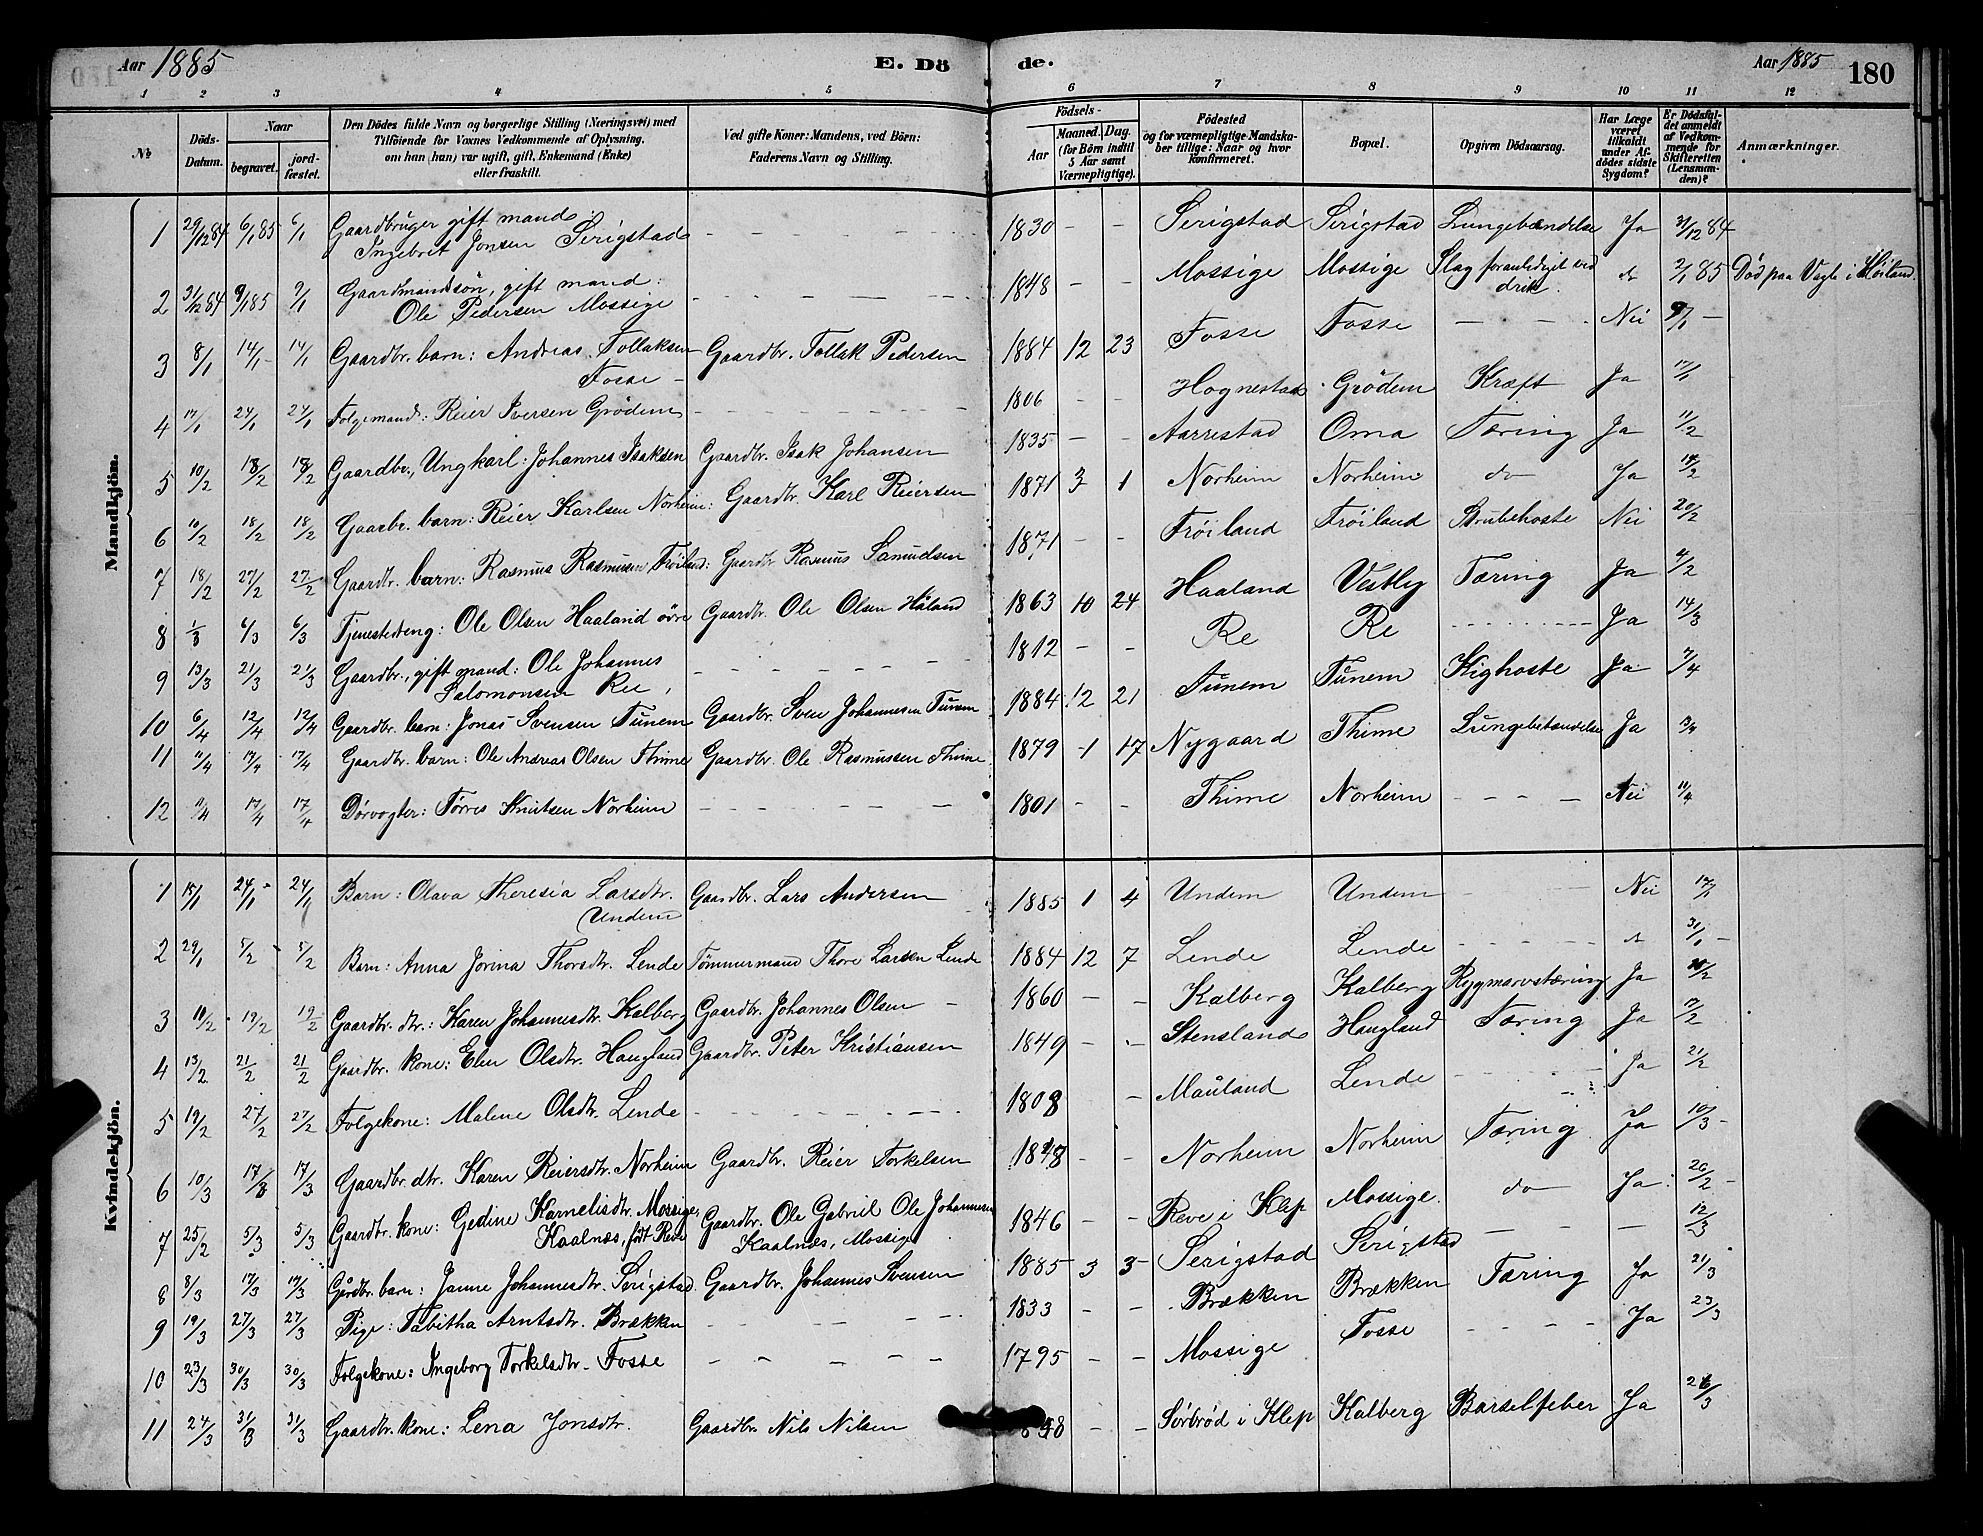 Aar 1885 E. Dö de. Aar 1885 180
1 2 3 4 5 6 7 8 9 10 11 12
No Döds-Datum. Naar begravet. jordfæstet. Den Dödes fulde Navn og borgerlige Stilling (Næringsvei) med Tilföiende for Voxnes Vedkommende af Oplysning, om han (hun) var ugift, gift, Enkemand (Enke) eller fraskilt. Ved gifte Koner: Mandens, ved Börn: Faderens Navn og Stilling. Födsels- Aar Maaned. Dag. (for Börn indtil 5 Aar samt Værnepligtige). Födested og for værnepligtige Mandskaber tillige: Naar og hvor konfirmeret. Bopæl. Opgiven Dödsaarsag. Har Læge været tilkaldt under Afdödes sidste Sygdom? Er Dödsfaldet anmeldt af Vedkommende for Skifteretten (Lensmanden)? Anmærkninger.
Mandkjön.
1 29/12 84 6/1 85 6/1 Gaardbruger gift mand Ingebret Jonsen Serigstad - - - - - 1830 - - Serigstad Serigstad Lungebændelse Ja 31/12 84
2 31/12 84 9/1 85 9/1 Gaardmandsön, gift mand: Ole Pedersen Mossige - - - - - 1848 - - Mossige Mossige Slag foranlediget ved drik. do 2/1 85 Död paa Vagle i Höiland.
3 8/1 14/1 14/1 Gaardbr. barn: Andreas Tollaksen Fosse - Gaardbr. Tollak Pedersen 1884 12 23 Fosse Fosse - - Nei 9/1 -
4 17/1 24/1 24/1 Folgemand: Reier Iversen Grödem - - - - - 1806 - - Hognestad Grödem Kræft Ja 17/1
5 10/2 18/2 18/2 Gaardbr., Ungkarl: Johannes Isaksen Gaardbr. Isak Johansen 1835 - - Aarrestad Oma Tæring Ja 11/2
6 10/2 18/2 18/2 Gaarbr. barn: Reier Karlsen Norheim: Gaardbr. Karl Reiersen 1871 3 1 Norheim Norheim do Ja 14/2
7 18/2 27/2 27/2 Gaardbr. barn: Rasmus Rasmussen Fröiland: Gaardbr Rasmus Samuelsen 1871 - - Fröiland Fröiland Strubehoste Nei 20/2
8 1/3 6/3 6/3 Tjenestedreng: Ole Olsen Haaland övre Gaardbr. Ole Olsen Håland 1863 10 24 Haaland Vestly Tæring Ja 4/2
9 13/3 21/3 21/3 Gaardbr., gift mand: Ole Johannes Salomonsen Ree, - - - - - 1812 - - Re Re - - - - Ja 14/3
10 6/4 12/4 12/4 Gaardbr. barn: Jonas Svensen Tunem Gaardbr. Sven Johannesen Tunem 1884 12 21 Tunem Tunem Kighoste Ja 7/4
11 11/4 17/4 17/4 Gaardbr. barn: Ole Andreas Olsen Thime Gaardbr. Ole Rasmussen Thime 1879 1 17 Nygaard Thime Lungebetændelse Ja 13/4
12 11/4 17/4 17/4 Dørvogter: Törres Knutsen Norheim - - - - - 1801 - - Thime Norheim - - - - Nei 11/4
Kvindekjön.
1 15/1 24/1 24/1 Barn: Olava Theresia Larsdtr. Undem Gaardbr. Lars Andersen 1885 1 4 Undem Undem - - Nei 17/1
2 29/1 5/2 5/2 Barn: Anna Jorina Thorsdtr. Lende Tömmermand Thore Larsen Lende 1884 12 7 Lende Lende - - - - do 30/1 -
3 10/2 19/2 19/2 Gaardbr. dtr.: Karen Johannesdtr. Kalberg Gaardbr. Johannes Olsen 1860 - - Kalberg Kalberg Rygmarvstæring Ja 10/2
4 13/2 21/2 21/2 Gaardbr. kone: Elen Olsdtr. Haugland Gaardbr. Peter Kristiansen 1849 - - Stensland Haugland Tæring Ja 17/2
5 19/2 27/2 27/2 Folgekone: Malene Olsdtr. Lende - - - - - 1808 - Mauland Lende - - - - Ja 21/2
6 10/3 17/3 17/3 Gaardbr. dtr. Karen Reiersdtr. Norheim Gaardbr. Reier Torkelsen 1848 - - Norheim Norheim Tæring Ja 10/3 -
7 25/2 5/3 5/3 Gaardbr. kone: Gedine Kornelisdtr. Mossige, Kaalnæs, födt Reve Gaardbr. Ole Gabriel Ole Johannesen Kaalnæs, Mossige 1846 - - Reve i Klep Mossige. do Ja: 26/2 -
8 8/3 17/3 17/3 Gårdbr. barn: Janne Johannesdtr. Serigstad Gaardbr. Johannes Svensen 1885 3 3 Serigstad Serigstad - - - 12/3
9 19/3 27/3 27/3 Pige: Tabitha Arntsdtr. Brækken - - - - - 1833 - - Brækken Brækken Tæring Ja 21/3
10 23/3 30/3 30/3 Folgekone: Ingeborg Torkelsdtr. Fosse - - - - - 1795 - - Mossige Fosse - - - - Ja 23/3
11 24/3 31/3 31/3 Gaardbr. kone: Lena Jonsdtr. Gaardbr. Nils Nilsen 858 - - Sörbröd i Klep Kalberg Barselfeber Ja 26/3